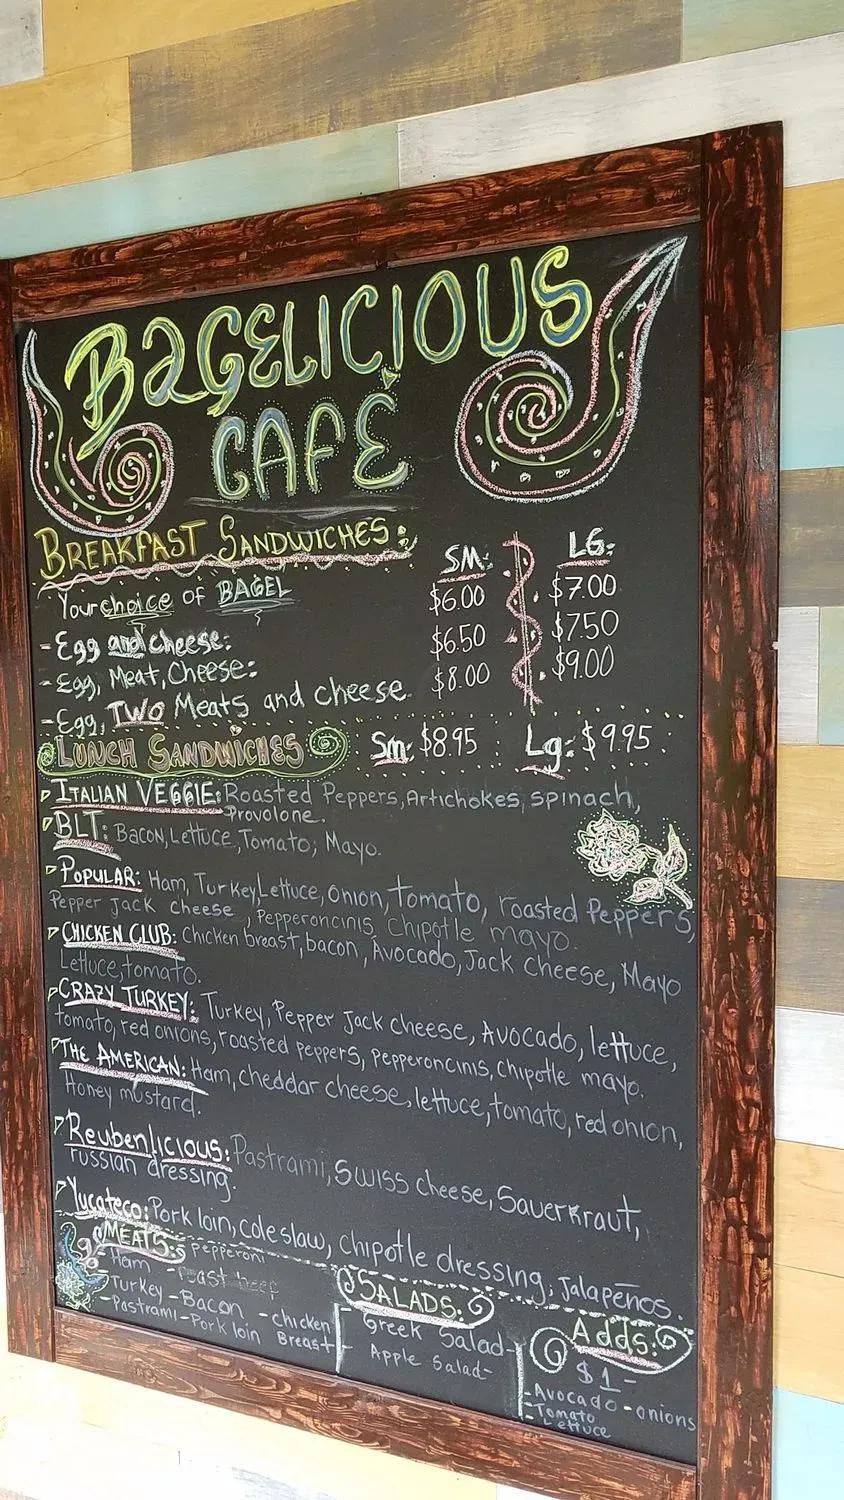 BAGELICIOUS
CAFÉ
BREAKFAST SANDWICHES:
SM: LG:
Your choice of BAGEL $6.00 $7.00
- Egg and cheese: $6.50 $7.50
- Egg, Meat, Cheese: $8.00 $9.00
- Egg, TWO Meats and cheese
LUNCH SANDWICHES Sm: $8.95 Lg: $9.95
ITALIAN VEGGIE: Roasted Peppers, Artichokes, spinach,
Provolone.
BLT: Bacon, Lettuce, Tomato, Mayo.
POPULAR: Ham, Turkey, Lettuce, Onion, tomato, roasted Peppers,
Pepper jack cheese, Pepperoncinis, Chipotle mayo.
CHICKEN CLUB: Chicken breast, bacon, Avocado, Jack Cheese, Mayo
Lettuce, tomato.
CRAZY TURKEY: Turkey, Pepper Jack cheese, Avocado, lettuce,
tomato, red onions, roasted peppers, pepperoncinis, chipotle mayo.
THE AMERICAN: Ham, cheddar cheese, lettuce, tomato, red onion,
Honey mustard.
Reubenlicious: Pastrami, Swiss cheese, Sauerkraut,
russian dressing.
Yucateco: Pork loin, coleslaw, chipotle dressing, jalapeños.
MEATS: Pepperoni
- Ham - roast beef
- Turkey - Bacon - chicken
- Pastrami - Pork loin Breast
SALADS:
- Greek Salad -
- Apple Salad -
Adds:
$1 -
- Avocado - onions
- Tomato
- Lettuce